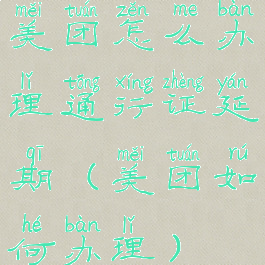 měi tuán zěn me bàn
美团怎么办
lǐ tōng xíng zhèng yán
理通行证延
qī měi tuán rú
期(美团如
hé bàn lǐ
何办理)